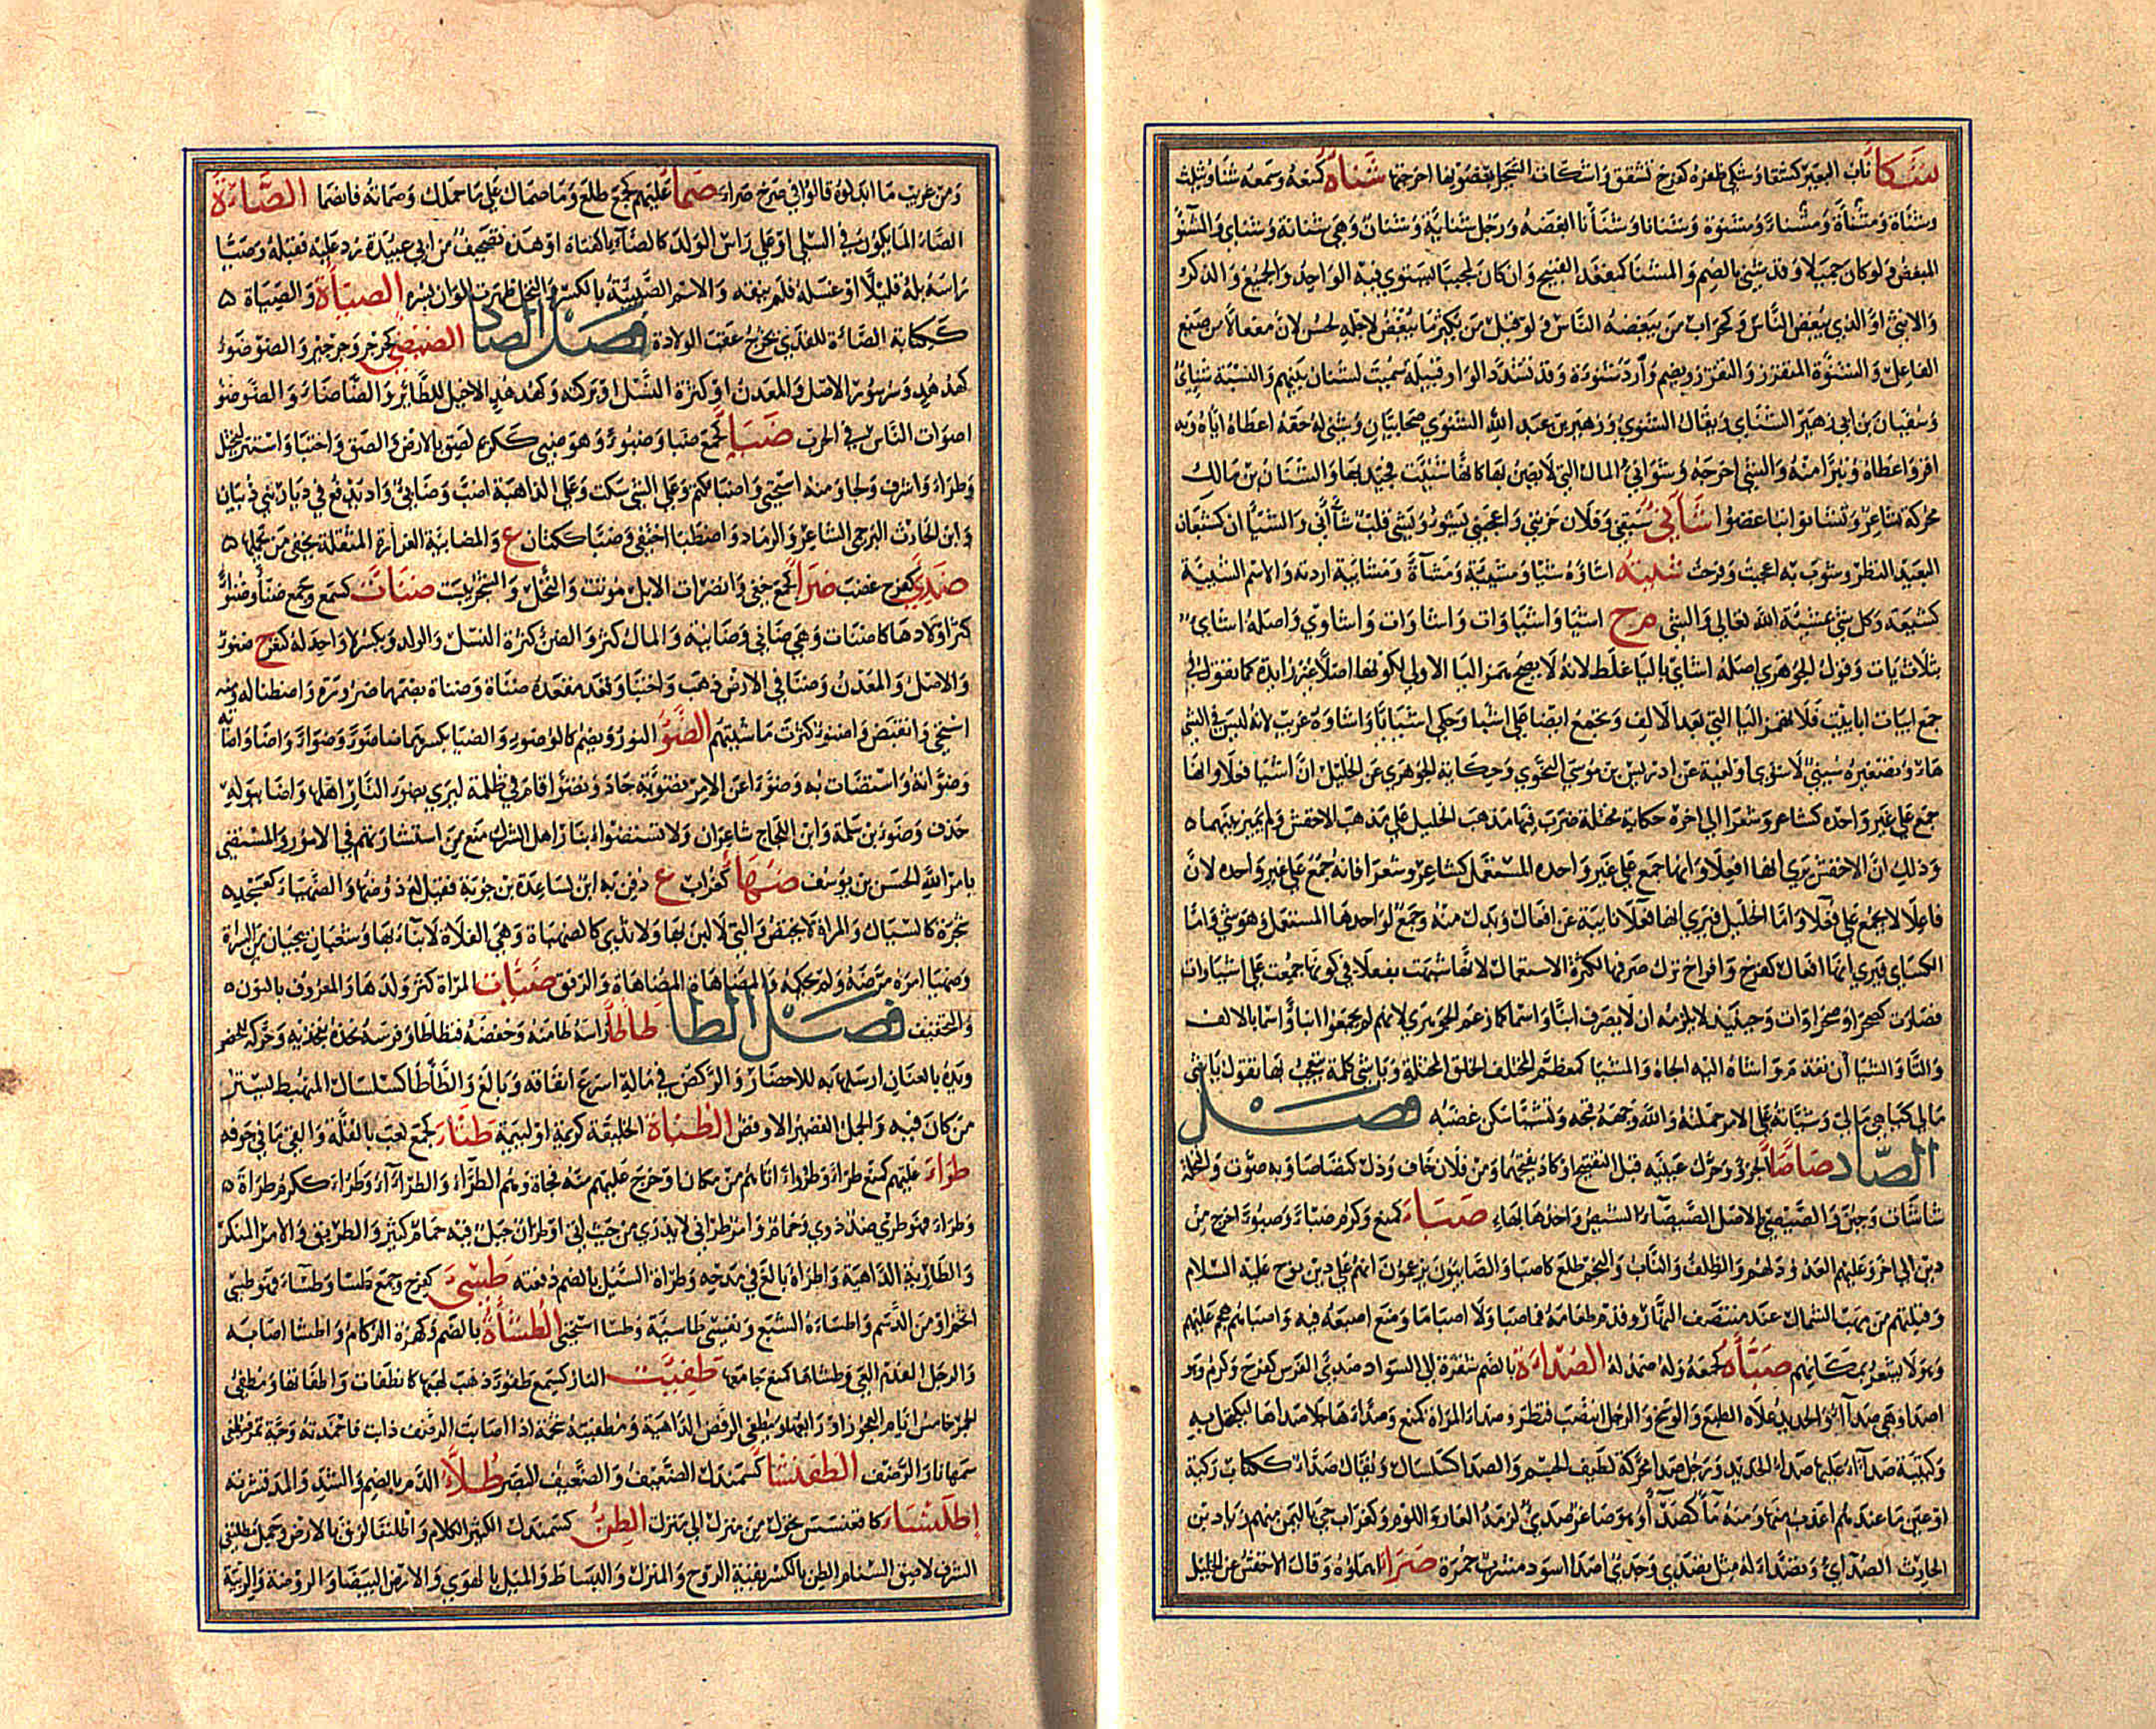 شكأ ناب البعير كشقأ وشكئ ظفره كفرح تشقق واشكأت الشجرة بغصونها اخرجتها شناه كمنعه وسمعه شنأ ويثلث
وشنأة ومشنأة ومشناة ومشنوة وشنئانا وشنأنا ابغضه ورجل شنائية وشنان وهي شنانة وشنأى والمشنؤ
المبغض ولو كان جميلا وقد شنئ بالضم والمشنا كمقعد القبيح وان كان محببا يستوي فيه الواحد والجميع والذكر
والانثى او الذي يبغض الناس وكمحراب من يبغضه الناس ولو قيل من يكثر ما يبغض لاجله لحسن لان مفعالا من صيغ
الفاعل والشنوءة المتقزز والتقزز ويضم وازد شنوءة وقد تشدد الواو قبيلة سميت لشنان بينهم والنسبة شنائي
وسفيان بن ابي زهير الشنائي ويقال الشنوي وزهير بن عبد الله الشنوي صحابيان وشنئ له حقه اعطاه اياه وبه
اقر واعطاه وتبرأ منه والشئ اخرجه وشوانئ المال التي لا يضن بها كانها شنئت فجيد بها والشنان بن مالك
محركة شاعر وتشانوا تباغضوا شآني سبقني وفلان حزنني واعجبني يشوء ويشئ قلب شآني والشيان كشيعان
البعيد النظر وشوت به اعجبت وفرحت شيته اشاؤه شيا ومشيئة ومشاة ومشائية اردته والاسم الشيئة
كشيعة وكل شئ بشيئة الله تعالى والشئ م ج اشيا واشياوات واشاوات واشاوي واصله اشايي
بثلاث يات وقول الجوهري اصله اشائي باليا غلط لانه لا يصح همز اليا الاولى لكونها اصلا غير زايدة كما تقول في
جمع ابيات اباييت فلا تهمز اليا التي بعد الالف ويجمع ايضا على اشيا وحكي اشيايا واشاوه غريب لانه ليس في الشئ
هاء وتصغيره شيئ لا شوئ او لغية عن ادريس بن موسى النحوي وحكاية الجوهري عن الخليل ان اشيا فعلا وانها
جمع على غير واحده كشاعر وشعرا الى اخره حكاية مختلة ضرب فيها مذهب الخليل على مذهب الاخفش ولم يميز بينهما ه
وذلك ان الاخفش يرى انها افعلا وانها جمع على غير واحده المستعمل كشاعر وشعرا فانه جمع على غير واحده لان
فاعلا لا يجمع على فعلا واما الخليل فيرى انها فعلا نايبة عن افعال وبدل منه وجمع لواحدها المستعمل وهو شئ واما
الكساي فيرى انها افعال كفرخ وافراخ ترك صرفها لكثرة الاستعمال لانها شبهت بفعلا في كونها جمعت على اشياوات
فصارت كصحرا وصحراوات وحينئذ لا يلزمه ان لا يصرف ابنا واسما كما زعم الجوهري لانهم لم يجمعوا ابنا واسما بالالف
والتا والشيا ان تقدم واشاه اليه الجاه والمشيا كمعظم المختلف الخلق المختله ويا شئ كلمة يتعجب بها تقول يا شئ
مالي كيا هي مالي وشياته على الامر حملته والله وجهه قبحه وتشيا سكن غضبه فصل
الصاد صاصا الجرو وحرك عينيه قبل التفتيح او كاد يفتحهما ومن فلان خاف وذل كتصاصا وبه صوت والنخلة
شاشات وجبن والصيصئ الاصل الصيصاء الشيص واحدها بهاء صبأ كمنع وكرم صبا وصبوء خرج من
دين الى اخر وعليهم العدو دلهم والظلف والناب والنجم طلع كاصبا والصابئون يزعمون انهم على دين نوح عليه السلام
وقبلتهم من مهب الشمال عند منتصف النهار وقدم طعامه فما صبا ولا اصبا ما وضع اصبعه فيه واصباهم هجم عليهم
وهو لا يشعر بمكانهم صتأه كجمعه وله صمد له الصداءة بالضم شقرة الى السواد صدئ الفرس كفرح وكرم وهو
اصدا وهي صداء والحديد علاه الطبع والوسخ والرجل انتصب فنظر وصداء المراة كمنع وصداها جلا صداها ليكتحل به
وكتيبة صداء عليها صداء الحديد ورجل صدا محركة لطيف الجسم والصدا كسلسال ويقال صداء ككتان ركية
او عين ما عندهم اعذب منها ومنه ماء كصداء وهو صاغر صدئ لزمه العار واللوم وكغراب حي باليمن منهم زياد بن
الحارث الصدائي وتصداء له مثل تصدى وجدي اصدا اسود مشرب حمرة صرأ اهملوه وقال الاخفش عن الخليل
ومن غريب ما ابدلوه قالوا في صرخ صراء صمأ عليهم كجمع طلع وما صماك على ما حملك وصماته فانصما الصاءة
الصاء الما يكون في السلى او على راس الولد كالصاة كقناة او هذه تصحيف من ابي عبيدة رد عليه فقبله وصيا
راسه بله قليلا او غسله فلم ينقه والاسم الصيئة بالكسر والنخل ظهرت الوان بسره الصيأة والصياة ه
ككتابة الصاءة للقذى يخرج عقب الولادة فصل الضاد الضئضئ كجرجر وجرجير والضوضوء
كهدهد وسرسور الاصل والمعدن او كثرة النسل او بركته وكهدهد الاخيل للطائر والضاضاء والضوضو
اصوات الناس في الحرب ضبأ كجمع ضبا وضبوء وهو ضبئ ككريم لصق بالارض والصق واختبا واستتر ليختل
وطراء واشرف ولجا ومنه استحيى واضبا كتم وعلى الشئ سكت وعلى الداهية اضب وضابئ واد يدفع في ديار بني ذبيان
وابن الحارث البرجمي الشاعر والرماد واضطبا اختفى وضبا ككتان ع والمضابئة الغرارة المثقلة يخفى من تحتها ه
ضدئ كفرح غضب ضرأ كجمع خفي وانضرات الابل موتت والنخل والشجر يبست ضنأت كسمع وجمع ضنأ وضنوء
كثر اولادها كاضنات وهي ضانئ وضانئة والمال كثر والضنئ كثرة النسل والولد ويكسر لا واحد له كنفر ج ضنوء
والاصل والمعدن وضنا في الارض ذهب واختبا وقعد مقعد ضناة وضناة بضمهما ضرورة واضطنا له ومنه
استحى وانقبض واضنؤا كثرت ماشيتهم الضوء النور ويضم كالضواء والضيا بكسرهما ضا ضوء وضواء واضا واضاته
وضواته واستضات به وضوء عن الامر تضوئة حاد وتضوأ قام في ظلمة ليرى بضوء النار اهلها واضا ببوله
حذف وضوء بن سلمة وابن اللجاج شاعران ولا تستضئوا بنار اهل الشرك منع من استشارتهم في الامور والمستضئ
بامر الله الحسن بن يوسف ضهأ كغراب ع دفن به ابن لساعدة بن جوية فقيل له ذو ضهاء والضهياء كعسجد ه
شجرة كالسيال والمراة لا تحيض والتي لا لبن لها ولا ثدي كالضهياة وهي الفلاة لا ماء بها وشعبان يجيان من السراة
وضهيا امره مرضه ولم يحكمه والمضاهاة المضاهاة والرفق ضيأت المراة كثر ولدها والمعروف بالنون ه
والتخفيف فصل الطا طأطأ راسه طامنه وخفضه فتطاطا وفرسه نحزه بفخذيه وحركه للحضر
ويده بالعنان ارسلها به للاحضار والركض في ماله اسرع انفاقه وبالغ والطأطا كسلسال المنهبط يستر
من كان فيه والجمل القصير الاوقص الطبأة الخليقة كريمة او لئيمة طثأ كجمع لعب بالقلة والقى ما في جوفه
طرأ عليهم كمنع طراء وطروء اتاهم من مكان او خرج عليهم منه فجاة وهم الطراء والطراء وطراء ككرم طراة ه
وطراء فهو طرئ ضد ذوي وحمام وامر طراني لا يدرى من حيث اتى وطران جبل فيه حمام كثير والطريق والامر المنكر
والطارئة الداهية واطراه بالغ في مدحه وطراة السيل بالضم دفعته طسئ كفرح وجمع طسا وطساء فهو طسئ
اتخم او من الدسم واطساه الشبع ونفسي طاسئة وطسا استحيى الطشأة بالضم وكهمزة الزكام واطشا اصابه
والرجل الفدم العيي وطشاها كمنع جامعها طفئت النار كسمع طفوء ذهب لهبها كانطفات واطفاتها ومطفئ
الجمر خامس ايام العجوز او رابعها ومطفئ الرضف الداهية ومطفئة شحمة اذا اصابت الرضف ذابت فاخمدته وحية تمر فيطفئ
سمها نار الرضف الطفنشأ كسمندل الضعيف والضعيف البصر طلاء الدم بالضم والشد والمد قشرته
اطلنسأ كاقعنسس تحول من منزل الى منزل الطنثئ كسمندل الكثير الكلام واطلنفا لزق بالارض وجمل مطلنفئ
الشرف لاصق السنام الطنئ بالكسر بقية الروح والمنزل والبساط والميل بالهوى والارض البيضا والروضة والريبة